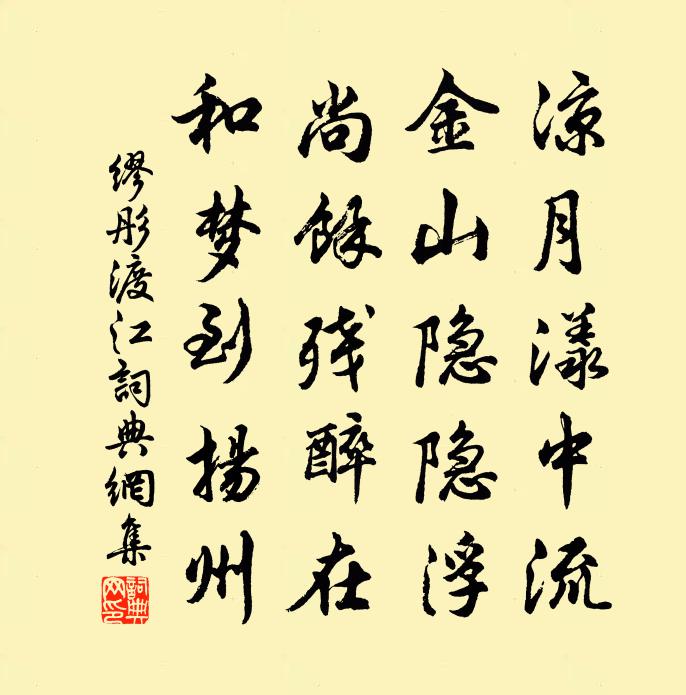 凉月漾中流
金山隐隐浮
尚餘残醉在
和梦到揚州
缪彤渡江詞典網集
詞典网印